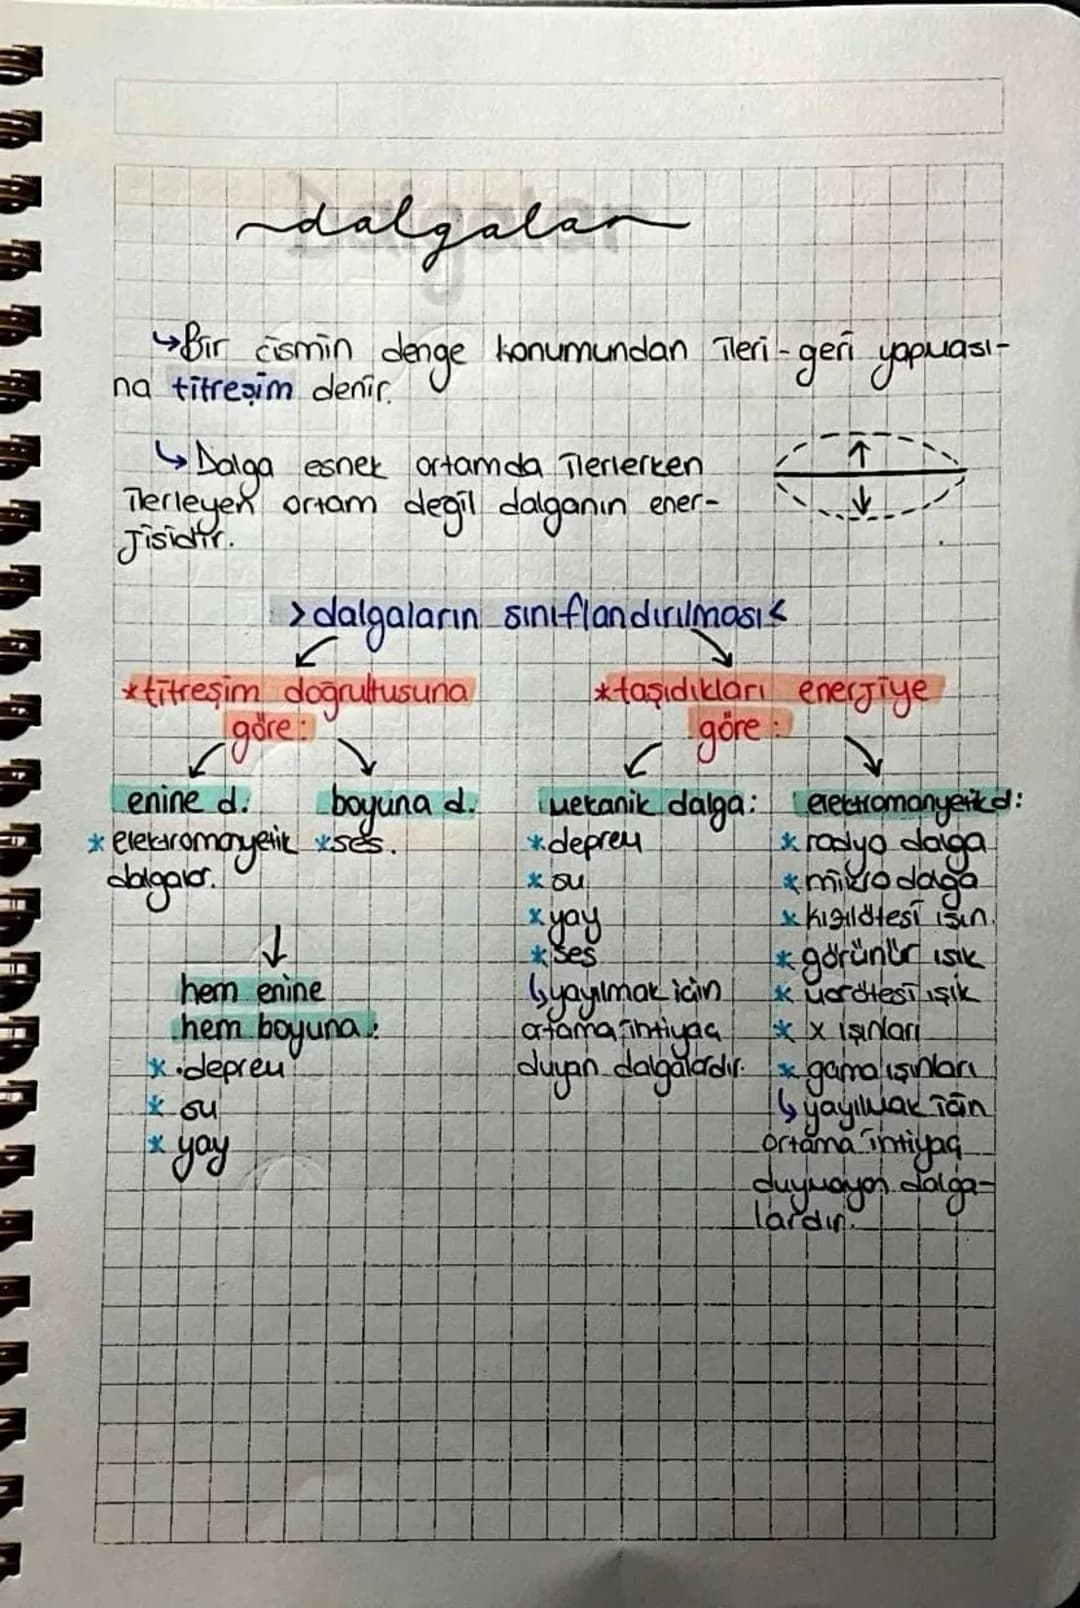 dalgalar
↳Bir cismin denge konumundan ileri-geri yapması-
na titreşim denir.
↳Dalga esnek ortamda ilerlerken
ilerleyen ortam değil dalganın ener-
jisidir.
>dalgaların sınıflandırılması<
*titreşim doğrultusuna
göre:
enine d.
*elektromanyetik
dalgalar.
boyuna d.
*ses.
hem enine
hem boyuna:
*.deprem
*su
*yay
*taşıdıkları enerjiye
göre:
mekanik dalga:
*deprem
*su
*yay
*ses
↳yayılmak için
ortama ihtiyaç
duyan dalgalardır.
elektromanyetik d:
*radyo dalga
*mikro dalga
*kızılötesi ışın.
*görünür ışık
*morötesi ışık
*x ışınları
*gama ışınları
↳yayılmak için
ortama ihtiyaç
duymayan dalga-
lardır.